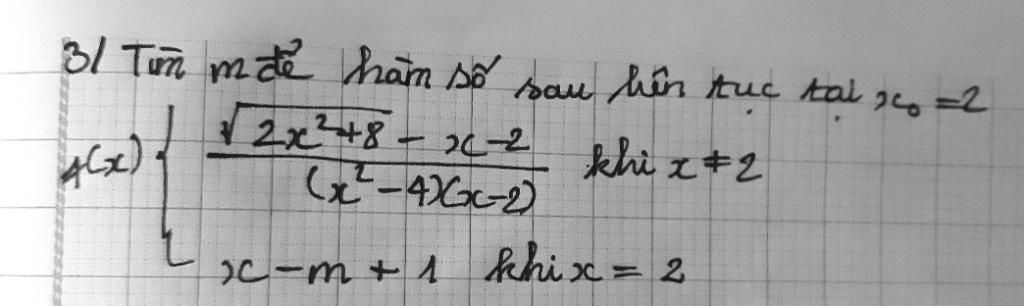 3/ Tìm m để hàm số sau liên tục tại x₀ = 2
f(x) { (√(2x²+8) - x - 2) / ((x² - 4)(x - 2)) khi x ≠ 2
x - m + 1 khi x = 2